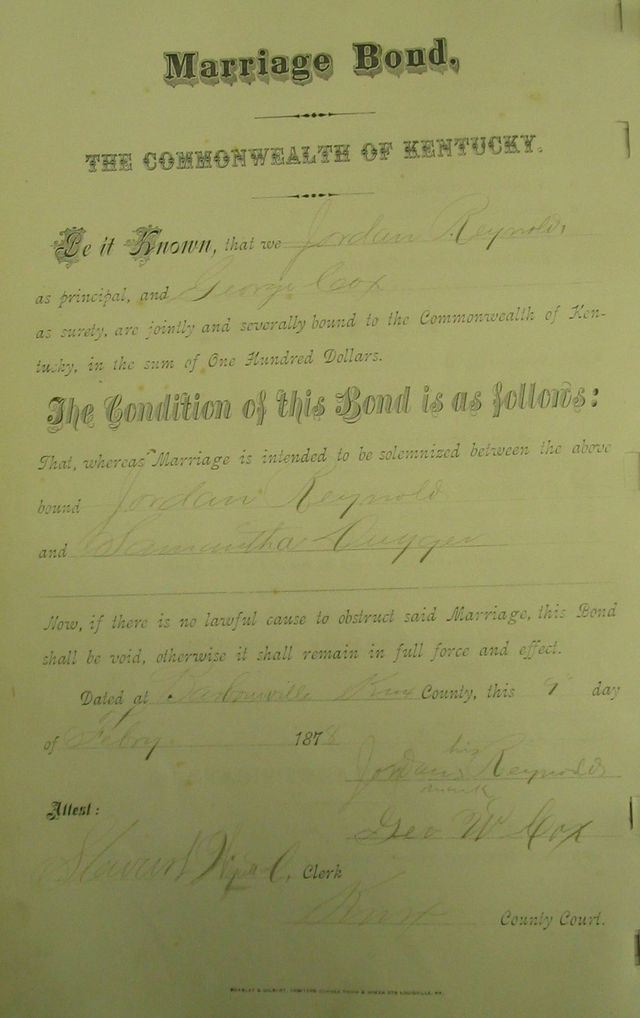 Marriage Bond,
THE COMMONWEALTH OF KENTUCKY.
Be it Known, that we Jordan Reynolds
as principal, and George Cox
as surety, are jointly and severally bound to the Commonwealth of Ken-
tucky, in the sum of One Hundred Dollars.
The Condition of this Bond is as follows:
That, whereas Marriage is intended to be solemnized between the above
bound Jordan Reynold
and Samantha
Now, if there is no lawful cause to obstruct said Marriage, this Bond
shall be void, otherwise it shall remain in full force and effect.
Dated at Barbourville Knox County, this 9 day
of Febry 1878
his
Jordan Reynolds
mark
Attest:
Geo W Cox
Clerk
Knox County Court.